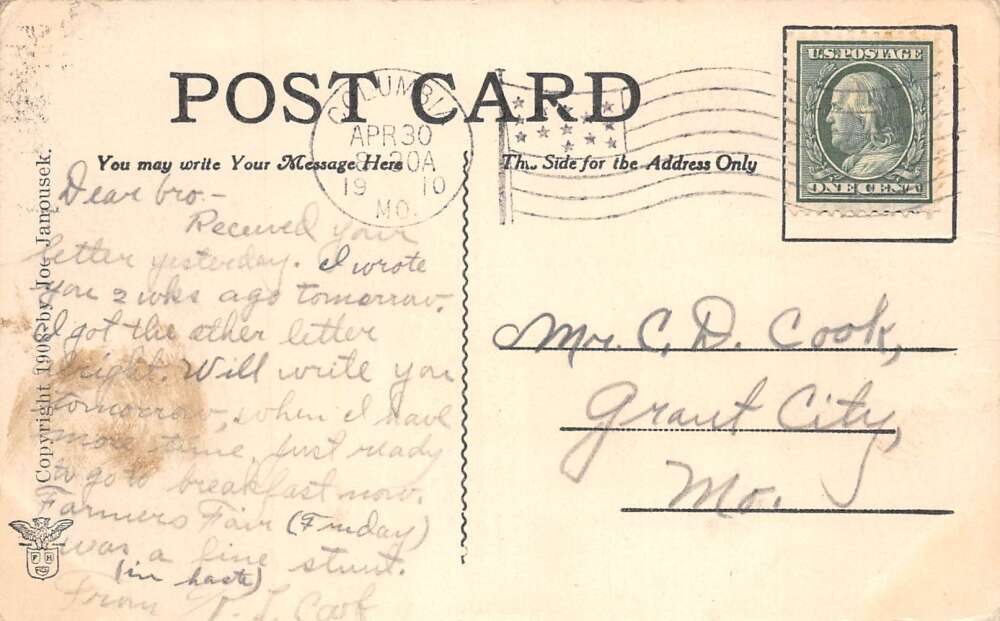 POST CARD
You may write Your Message Here
The Side for the Address Only
COLUMBIA
APR 30
30A
19 10
MO.
U.S. POSTAGE
ONE CENT
Copyright 1908 by Joe Janousek.
Dear bro.-
Received your
letter yesterday. I wrote
you 2 wks ago tomorrow.
I got the other letter
alright. Will write you
tomorrow, when I have
more time. Just ready
to go to breakfast now.
Farmers Fair (Friday)
was a fine stunt.
(in haste)
From L. Cook
Mr. C. D. Cook,
Grant City,
Mo.
F H